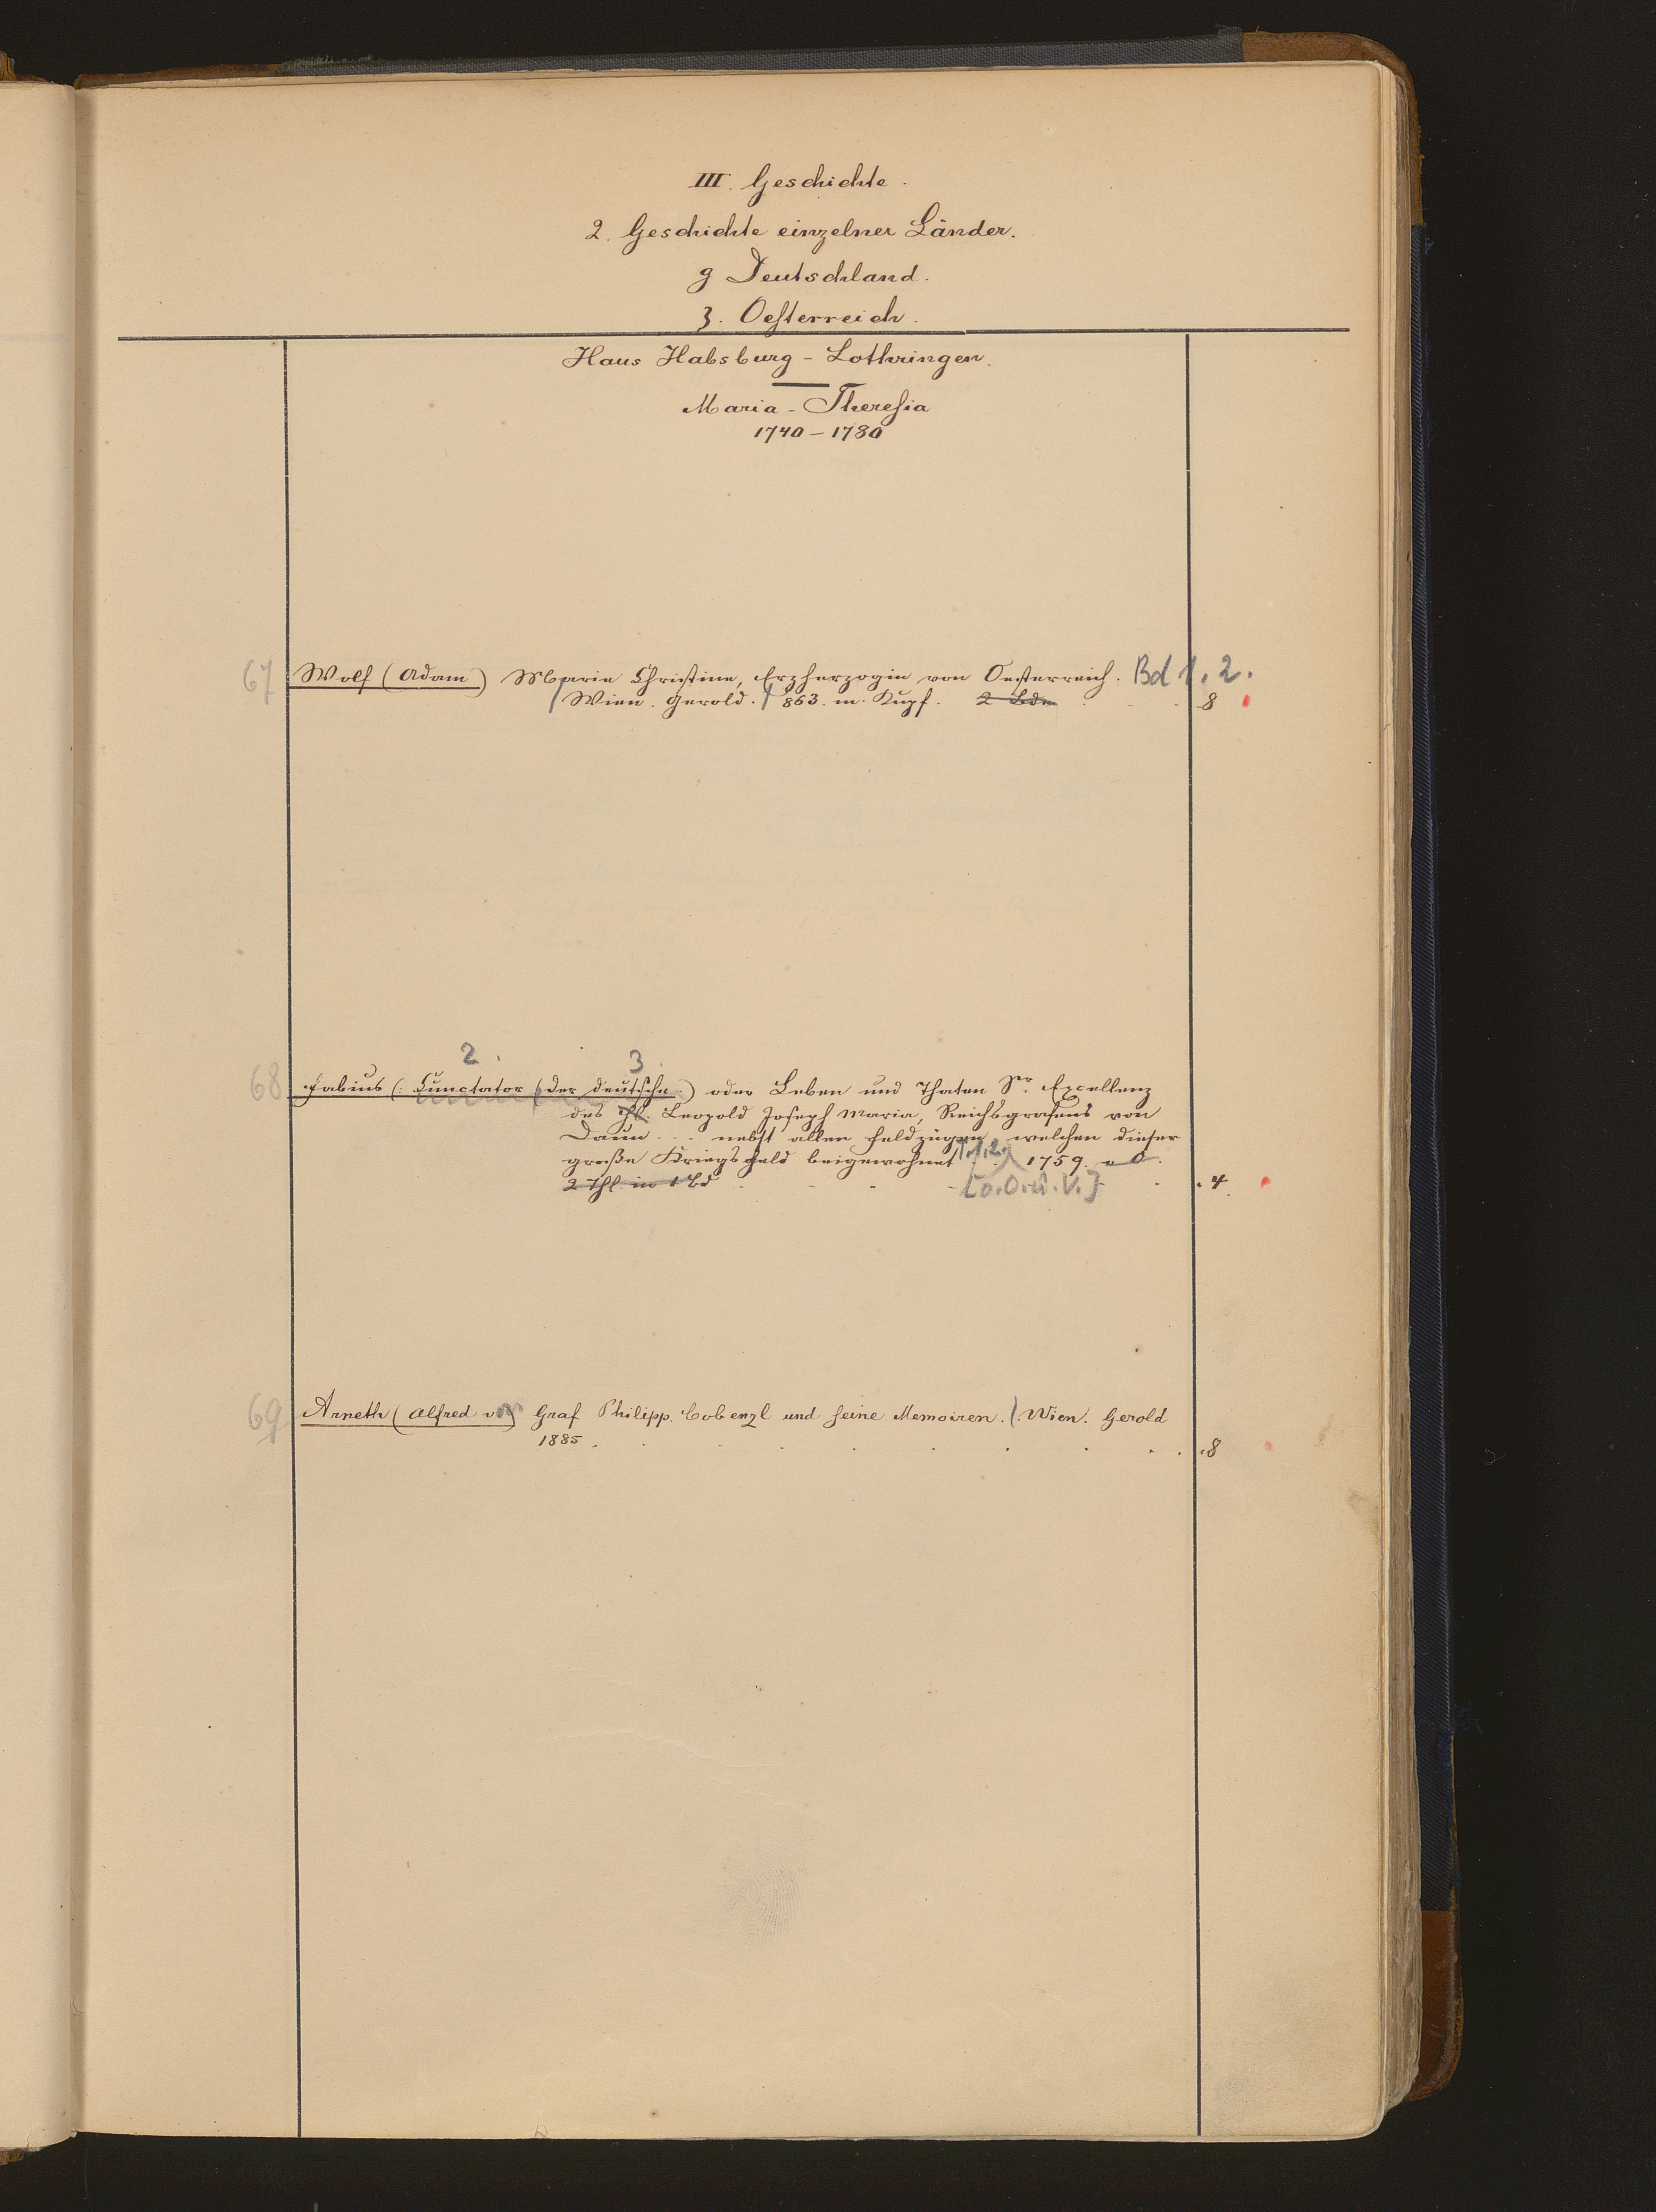 III. Geschichte.
2. Geschichte einzelner Länder.
g Deutschland.
3. Oesterreich.
Haus Habsburg - Lothringen.
Maria - Theresia
1740 - 1780
67 Wolf (Adam) Marie Christine, Erzherzogin von Oesterreich. Bd 1. 2.
Wien. Gerold. 1863. m. Kupf. 2 Bde 8
2. 3.
68 Fabius (: Cunctator (der deutsche:) oder Leben und Thaten Sr Excellenz
des Leopold Joseph Maria, Reichsgrafens von
Daun ... nebst allen Feldzügen welchen dieser
große Kriegsheld beigewohnt T. 1.2. 1759.
2 Thl. in 1 Bd [o. O. u. V.] 4
69 Arneth (Alfred v.) Graf Philipp Cobenzl und seine Memoiren. Wien. Gerold
1885. 8